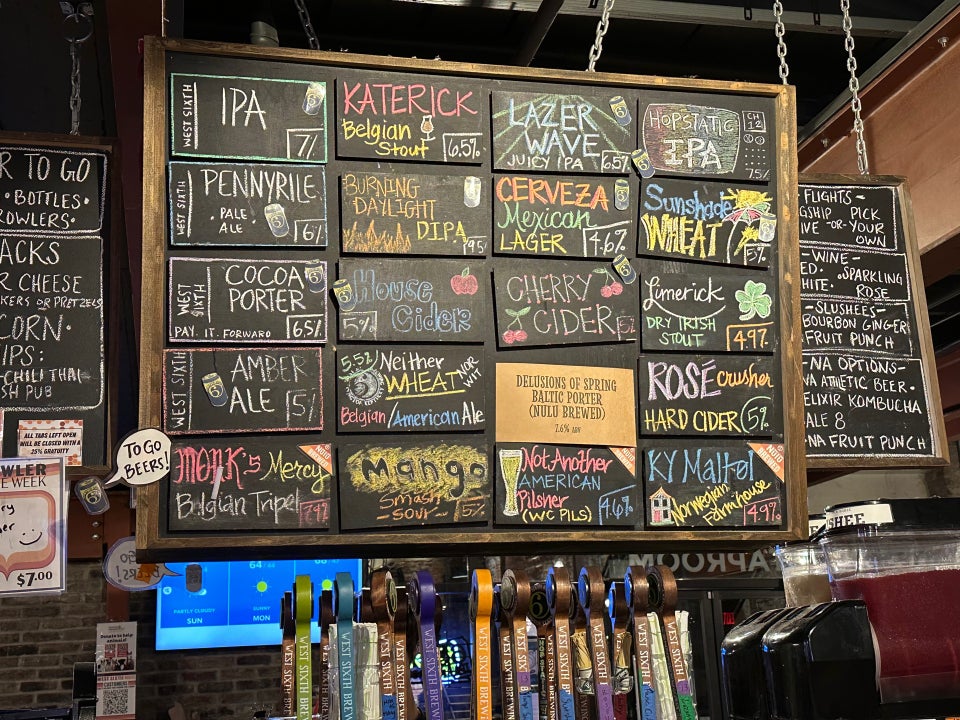 WEST SIXTH
IPA
7%
KATERICK
Belgian
Stout
6.5%
LAZER
WAVE
JUICY IPA
6.5%
HOPSTATIC
IPA
CH
12
7.5%
WEST SIXTH
PENNYRILE
PALE
ALE
6%
BURNING
DAYLIGHT
DIPA
CERVEZA
Mexican
LAGER
4.67%
Sunshade
WHEAT
5%
WEST
SIXTH
COCOA
PORTER
PAY. IT. FORWARD
6.5%
House
Cider
5%
CHERRY
CIDER
Limerick
DRY IRISH
STOUT
4.9%
WEST SIXTH
AMBER
ALE
5%
5.5%
Neither
WHEAT NOR
WIT
Belgian/American Ale
DELUSIONS OF SPRING
BALTIC PORTER
(NULU BREWED)
7.6% ABV
ROSÉ crusher
HARD CIDER
5%
MONK'S Mercy
Belgian Tripel
Mango
Smash
-SOUR-
5%
Not Another
AMERICAN
Pilsner
(WC PILS)
4.6%
KY Maltol
Norwegian
Farmhouse
4.9%
R TO GO
•BOTTLES•
ROWLERS•
ACKS
R CHEESE
KERS OR PRETZELS
CORN•
IPS:
-CHILI THAI
SH PUB
ALL TABS LEFT OPEN
WILL BE CLOSED WITH A
25% GRATUITY
TO GO
BEERS!
WLER
E WEEK
$7.00
FLIGHTS-
SHIP PICK
IVE -OR-YOUR
OWN
-WINE-
ED. •SPARKLING
HITE. ROSE
-SLUSHEES-
BOURBON GINGER
FRUIT PUNCH
-NA OPTIONS-
NA ATHLETIC BEER•
ELIXIR KOMBUCHA
ALE 8
NA FRUIT PUNCH
SHEE
TAPROOM
PARTLY CLOUDY
SUN
SUNNY
MON
Donate to help
animals!
WEST SIXTH BREWING
WEST SIXTH BREW
WEST SIXTH BREWING
WEST SIXTH BREWIN